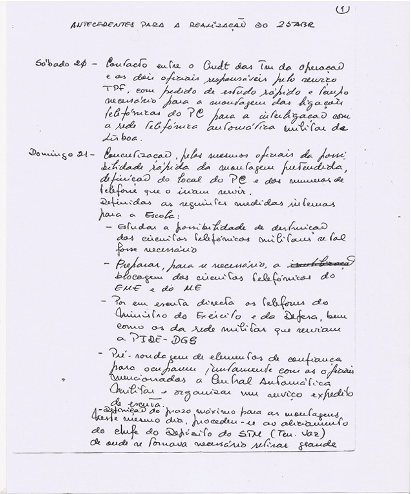 (1)
ANTECEDENTES PARA A REALIZAÇÃO DO 25ABR
Sábado 20 - Contacto entre o Cmdt das Tm da Operação
e os dois oficiais responsáveis pelo serviço
TPF, com pedido de estudo rápido e tempo
necessário para a montagem das ligações
telefónicas do PC para a interligação com
a rede telefónica automática militar de
Lisboa.
Domingo 21 - Concretização, pelos mesmos oficiais da possi-
bilidade rápida da montagem pretendida,
definição do local do PC e dos numeros de
telefone que o iriam servir.
Definidas as seguintes medidas internas
para a Escola:
- Estudar a possibilidade de destruição
dos circuitos telefónicos militares se tal
fosse necessário
- Preparar, para se necessário, a
blocagem dos circuitos telefónicos do
EME e do ME
- Por em escuta directa os telefones do
Ministro do Exército e da Defesa, bem
como os da rede militar que serviam
a PIDE-DGS
- Pré-sondagem de elementos de confiança
para ocuparem juntamente com os oficiais
mencionados a Central Automática
Militar e organizar um serviço expedito
de escuta.
- Definição do prazo máximo para as montagens,
Neste mesmo dia, procedeu-se ao aliciamento
do chefe do Depósito do STM (Ten. Vaz)
de onde se tornava necessário retirar grande